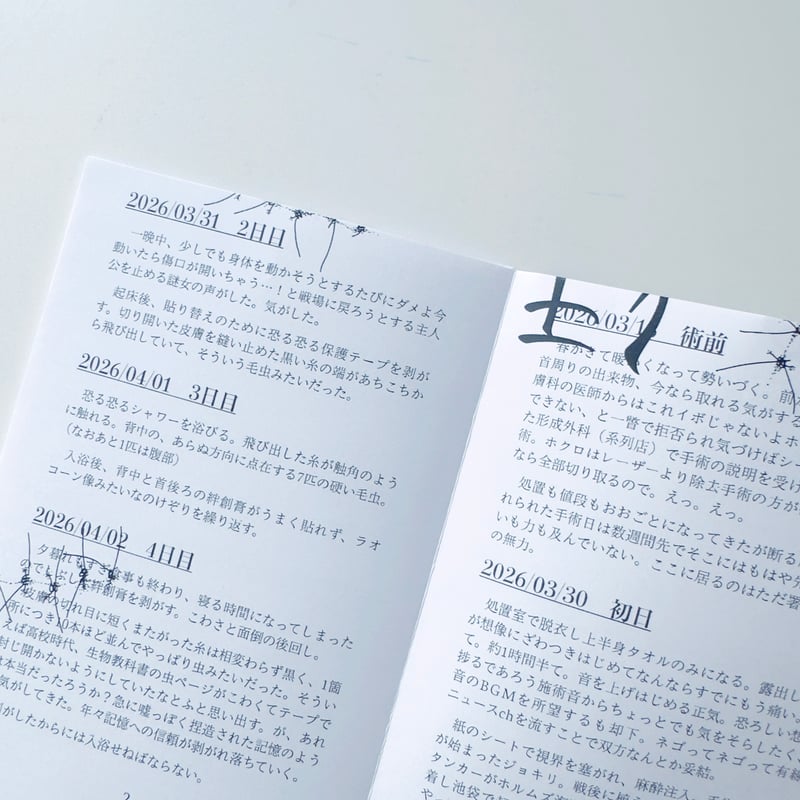 2026/03/31　2日目
一晩中、少しでも身体を動かそうとするたびにダメよ今
動いたら傷口が開いちゃう…！と戦場に戻ろうとする主人
公を止める謎女の声がした。気がした。
起床後、貼り替えのために恐る恐る保護テープを剥が
す。切り開いた皮膚を縫い止めた黒い糸の端があちこちか
ら飛び出していて、そういう毛虫みたいだった。
2026/04/01　3日目
恐る恐るシャワーを浴びる。飛び出した糸が触角のよう
に触れる。背中の、あらぬ方向に点在する7匹の硬い毛虫。
（なおあと1匹は腹部）
入浴後、背中と首後ろの絆創膏がうまく貼れず、ラオ
コーン像みたいなのけぞりを繰り返す。
2026/04/02　4日目
夕暮れもすぎ食事も終わり、寝る時間になってしまった
のでしぶしぶ絆創膏を剥がす。こわさと面倒の後回し。
皮膚の切れ目に短くまたがった糸は相変わらず黒く、1箇
所につき10本ほど並んでやっぱり虫みたいだった。そうい
えば高校時代、生物教科書の虫ページがこわくてテープで
封じ開かないようにしていたなとふと思い出す。が、あれ
は本当だったろうか？急に嘘っぽく捏造された記憶のよう
気がしてきた。年々記憶への信頼が剥がれ落ちていく。
がしたからには入浴せねばならない。
2
2026/03/1 術前
春がきて暖かくなって勢いづく。前
首周りの出来物、今なら取れる気がする
膚科の医師からはこれイボじゃないよホ
できない、と一瞥で拒否られ気づけばシー
た形成外科（系列店）で手術の説明を受け
術。ホクロはレーザーより除去手術の方が
なら全部切り取るので。えっ。えっ。
処置も値段もおおごとになってきたが断る
れられた手術日は数週間先でそこにはもはや
いも力も及んでいない。ここに居るのはただ
の無力。
2026/03/30　初日
処置室で脱衣し上半身タオルのみになる。露出し
が想像にざわつきはじめてなんならすでにもう痛い。
て。約1時間半て。音を上げはじめる正気。恐ろしい想
捗るであろう施術音からちょっとでも気をそらしたく
音のBGMを所望するも却下。ネゴってネゴって有線
ニュースchを流すことで双方なんとか妥結。
紙のシートで視界を塞がれ、麻酔注入。
が始まったジョキリ。戦後に
タンカーがホルムズ海
着し池袋で